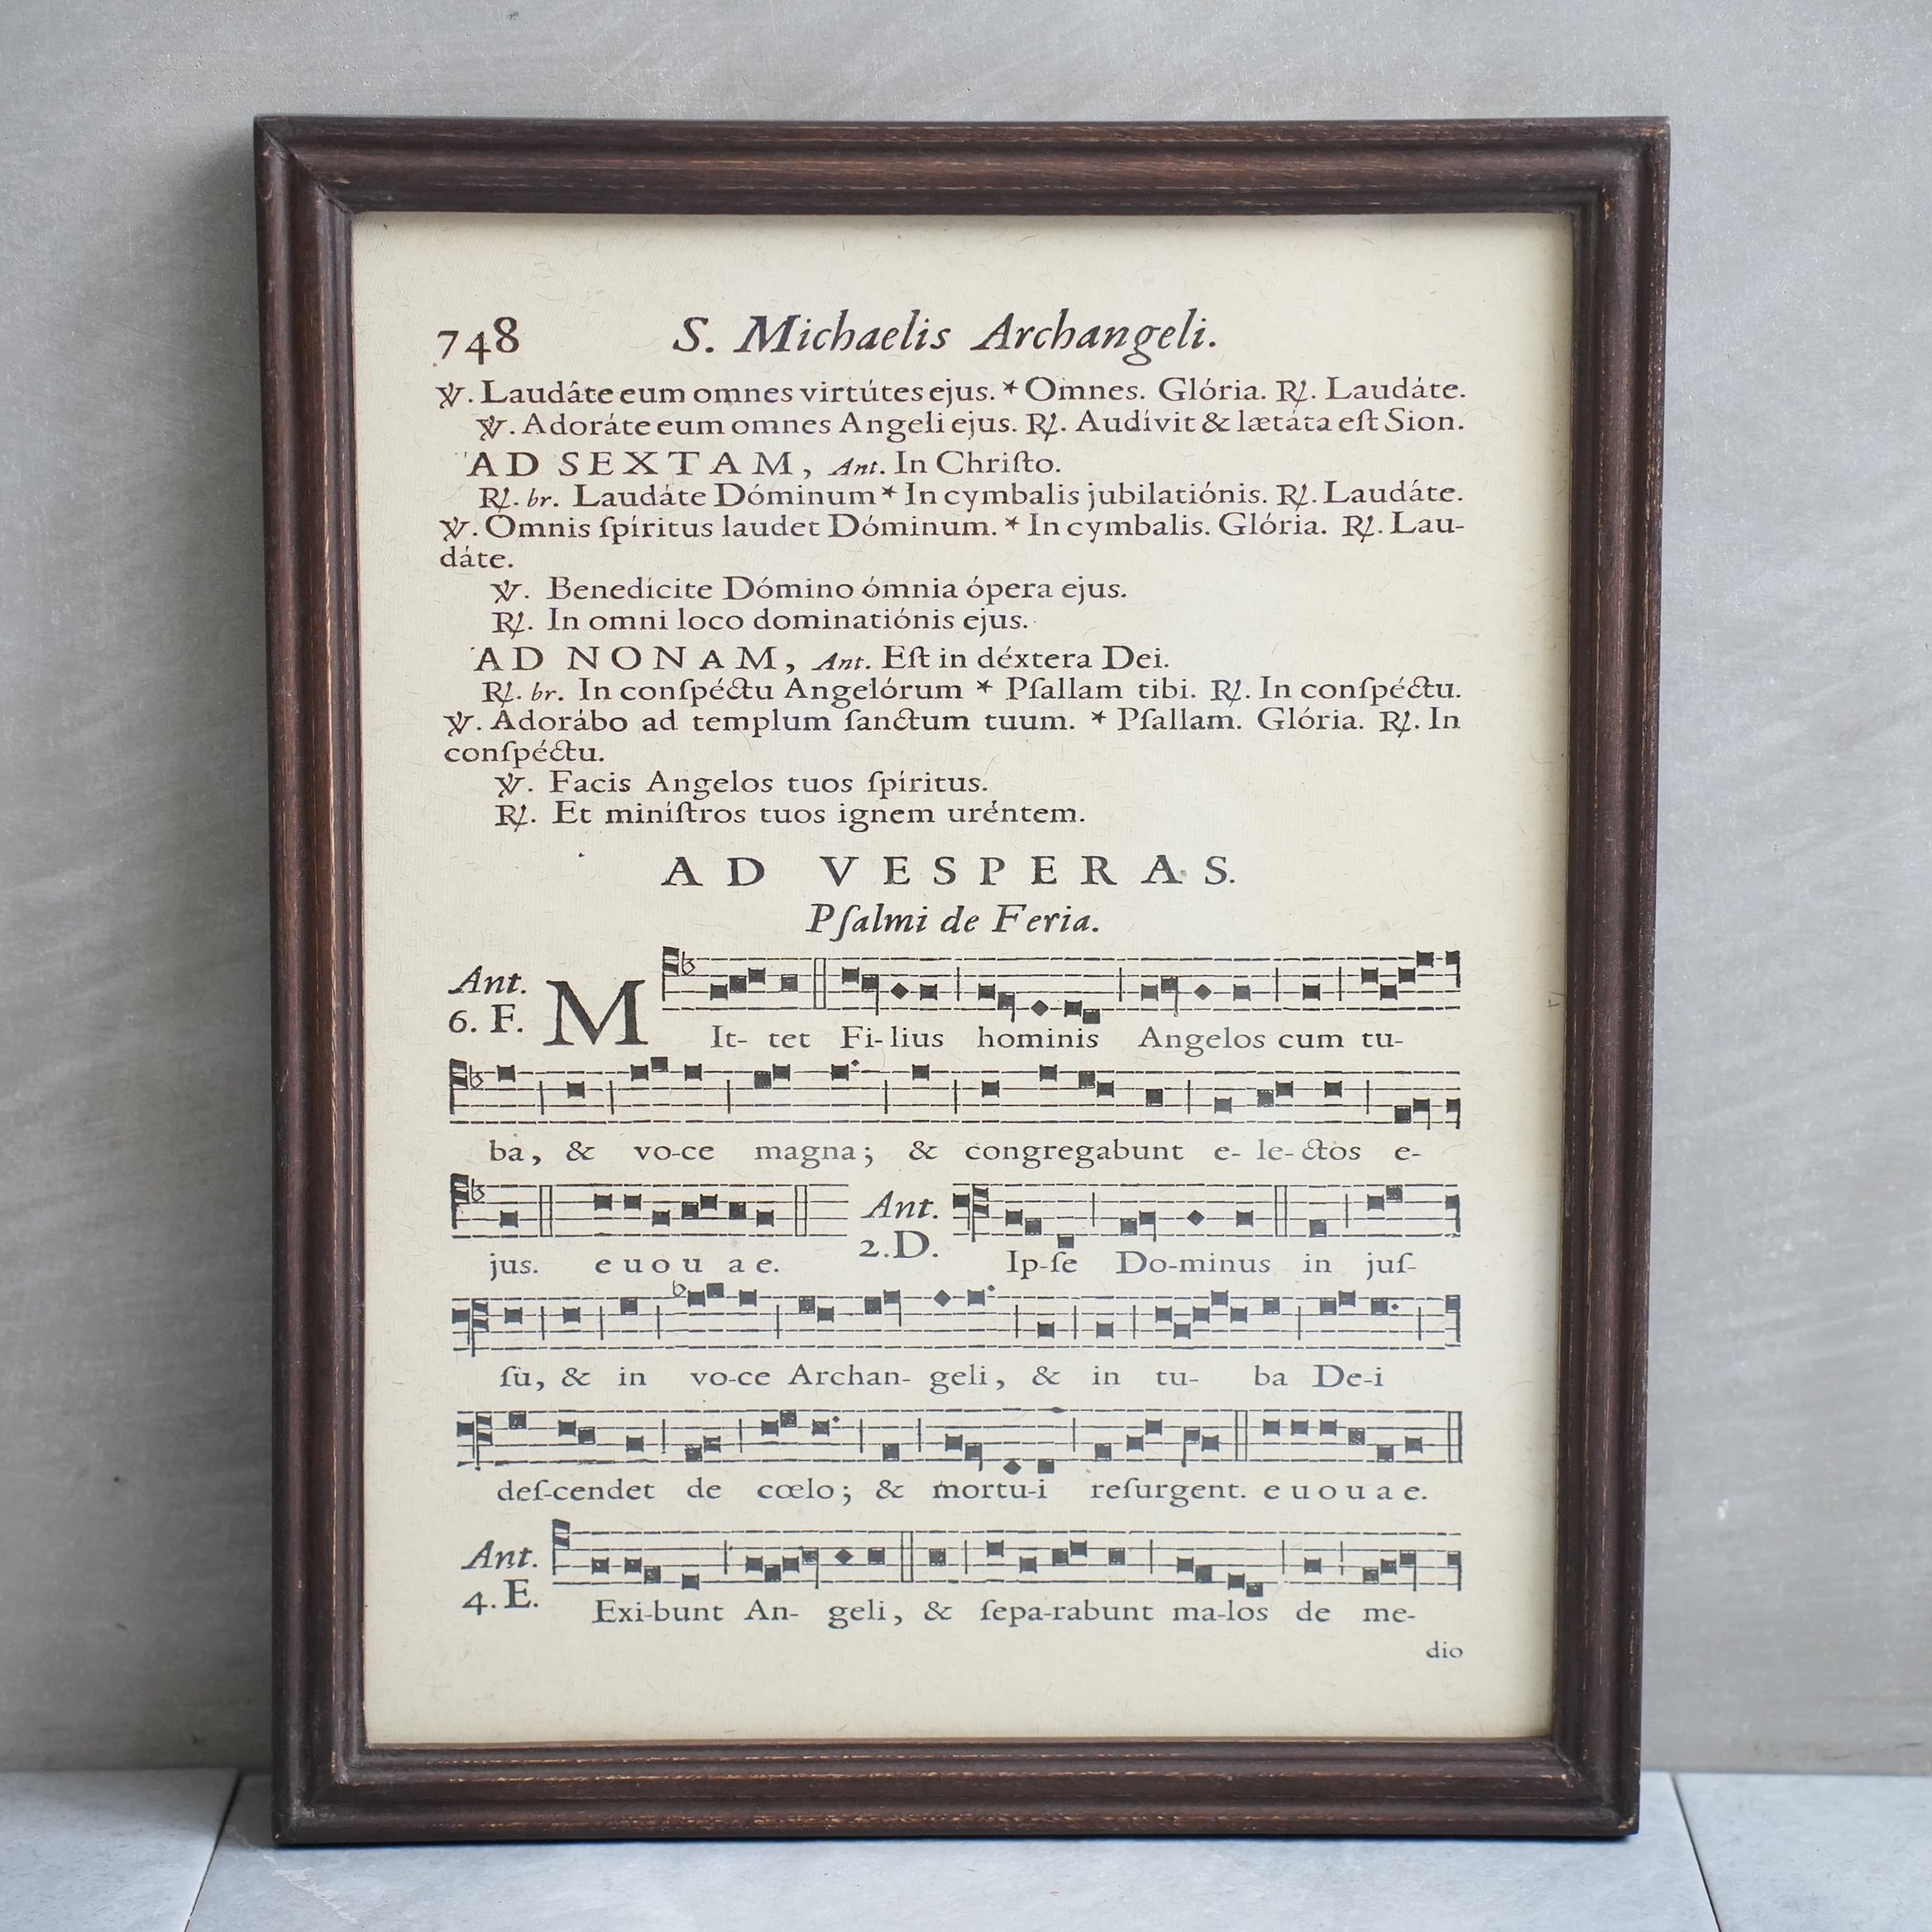 748 S. Michaelis Archangeli.
℣. Laudâte eum omnes virtútes ejus. * Omnes. Glória. ℟. Laudáte.
℣. Adoráte eum omnes Angeli ejus. ℟. Audívit & lætáta eſt Sion.
AD SEXTAM, Ant. In Chriſto.
℟. br. Laudáte Dóminum * In cymbalis jubilatiónis. ℟. Laudáte.
℣. Omnis ſpíritus laudet Dóminum. * In cymbalis. Glória. ℟. Lau-
dáte.
℣. Benedícite Dómino ómnia ópera ejus.
℟. In omni loco dominatiónis ejus.
AD NONAM, Ant. Eſt in déxtera Dei.
℟. br. In conſpéctu Angelórum * Pſallam tibi. ℟. In conſpéctu.
℣. Adorábo ad templum ſanctum tuum. * Pſallam. Glória. ℟. In
conſpéctu.
℣. Facis Angelos tuos ſpíritus.
℟. Et miníſtros tuos ignem uréntem.
AD VESPERAS.
Pſalmi de Feria.
Ant.
6. F.
MIt- tet Fi-lius hominis Angelos cum tu-
ba, & vo-ce magna; & congregabunt e- le-ctos e-
jus. e u o u a e.
Ant.
2. D.
Ip-ſe Do-minus in juſ-
ſu, & in vo-ce Archan- geli, & in tu- ba De-i
deſ-cendet de cœlo; & mortu-i reſurgent. e u o u a e.
Ant.
4. E.
Exi-bunt An- geli, & ſepa-rabunt ma-los de me-
dio